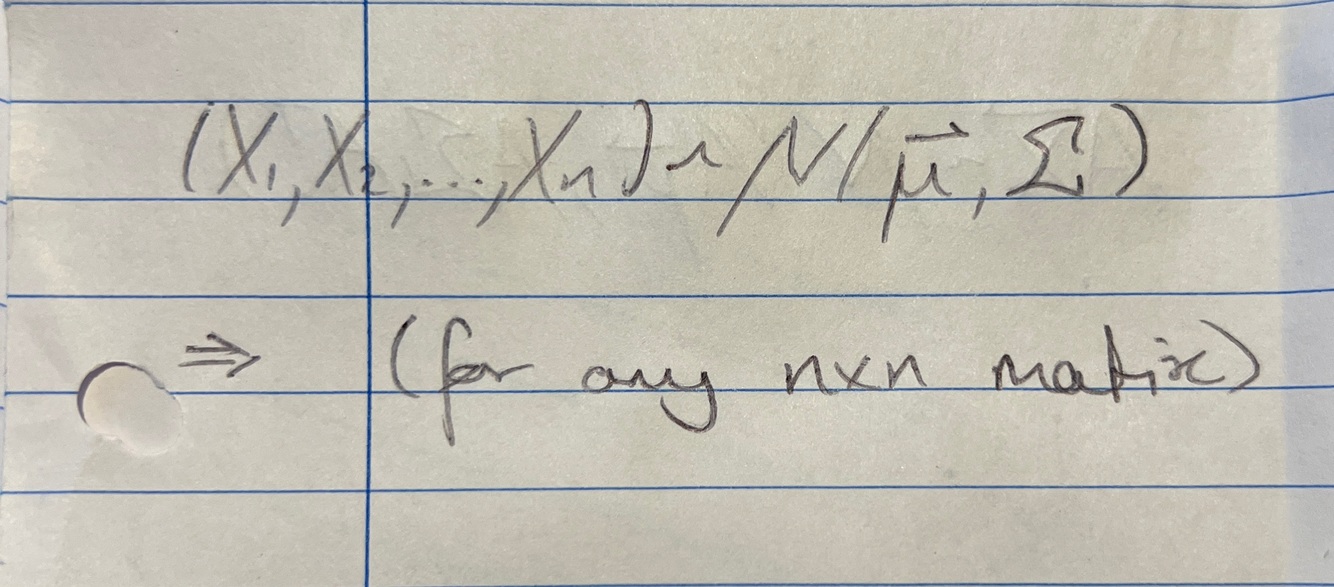 (X₁, X₂, ..., Xₙ) ~ N(μ⃗, Σ)
⇒ (for any n×n matrix)